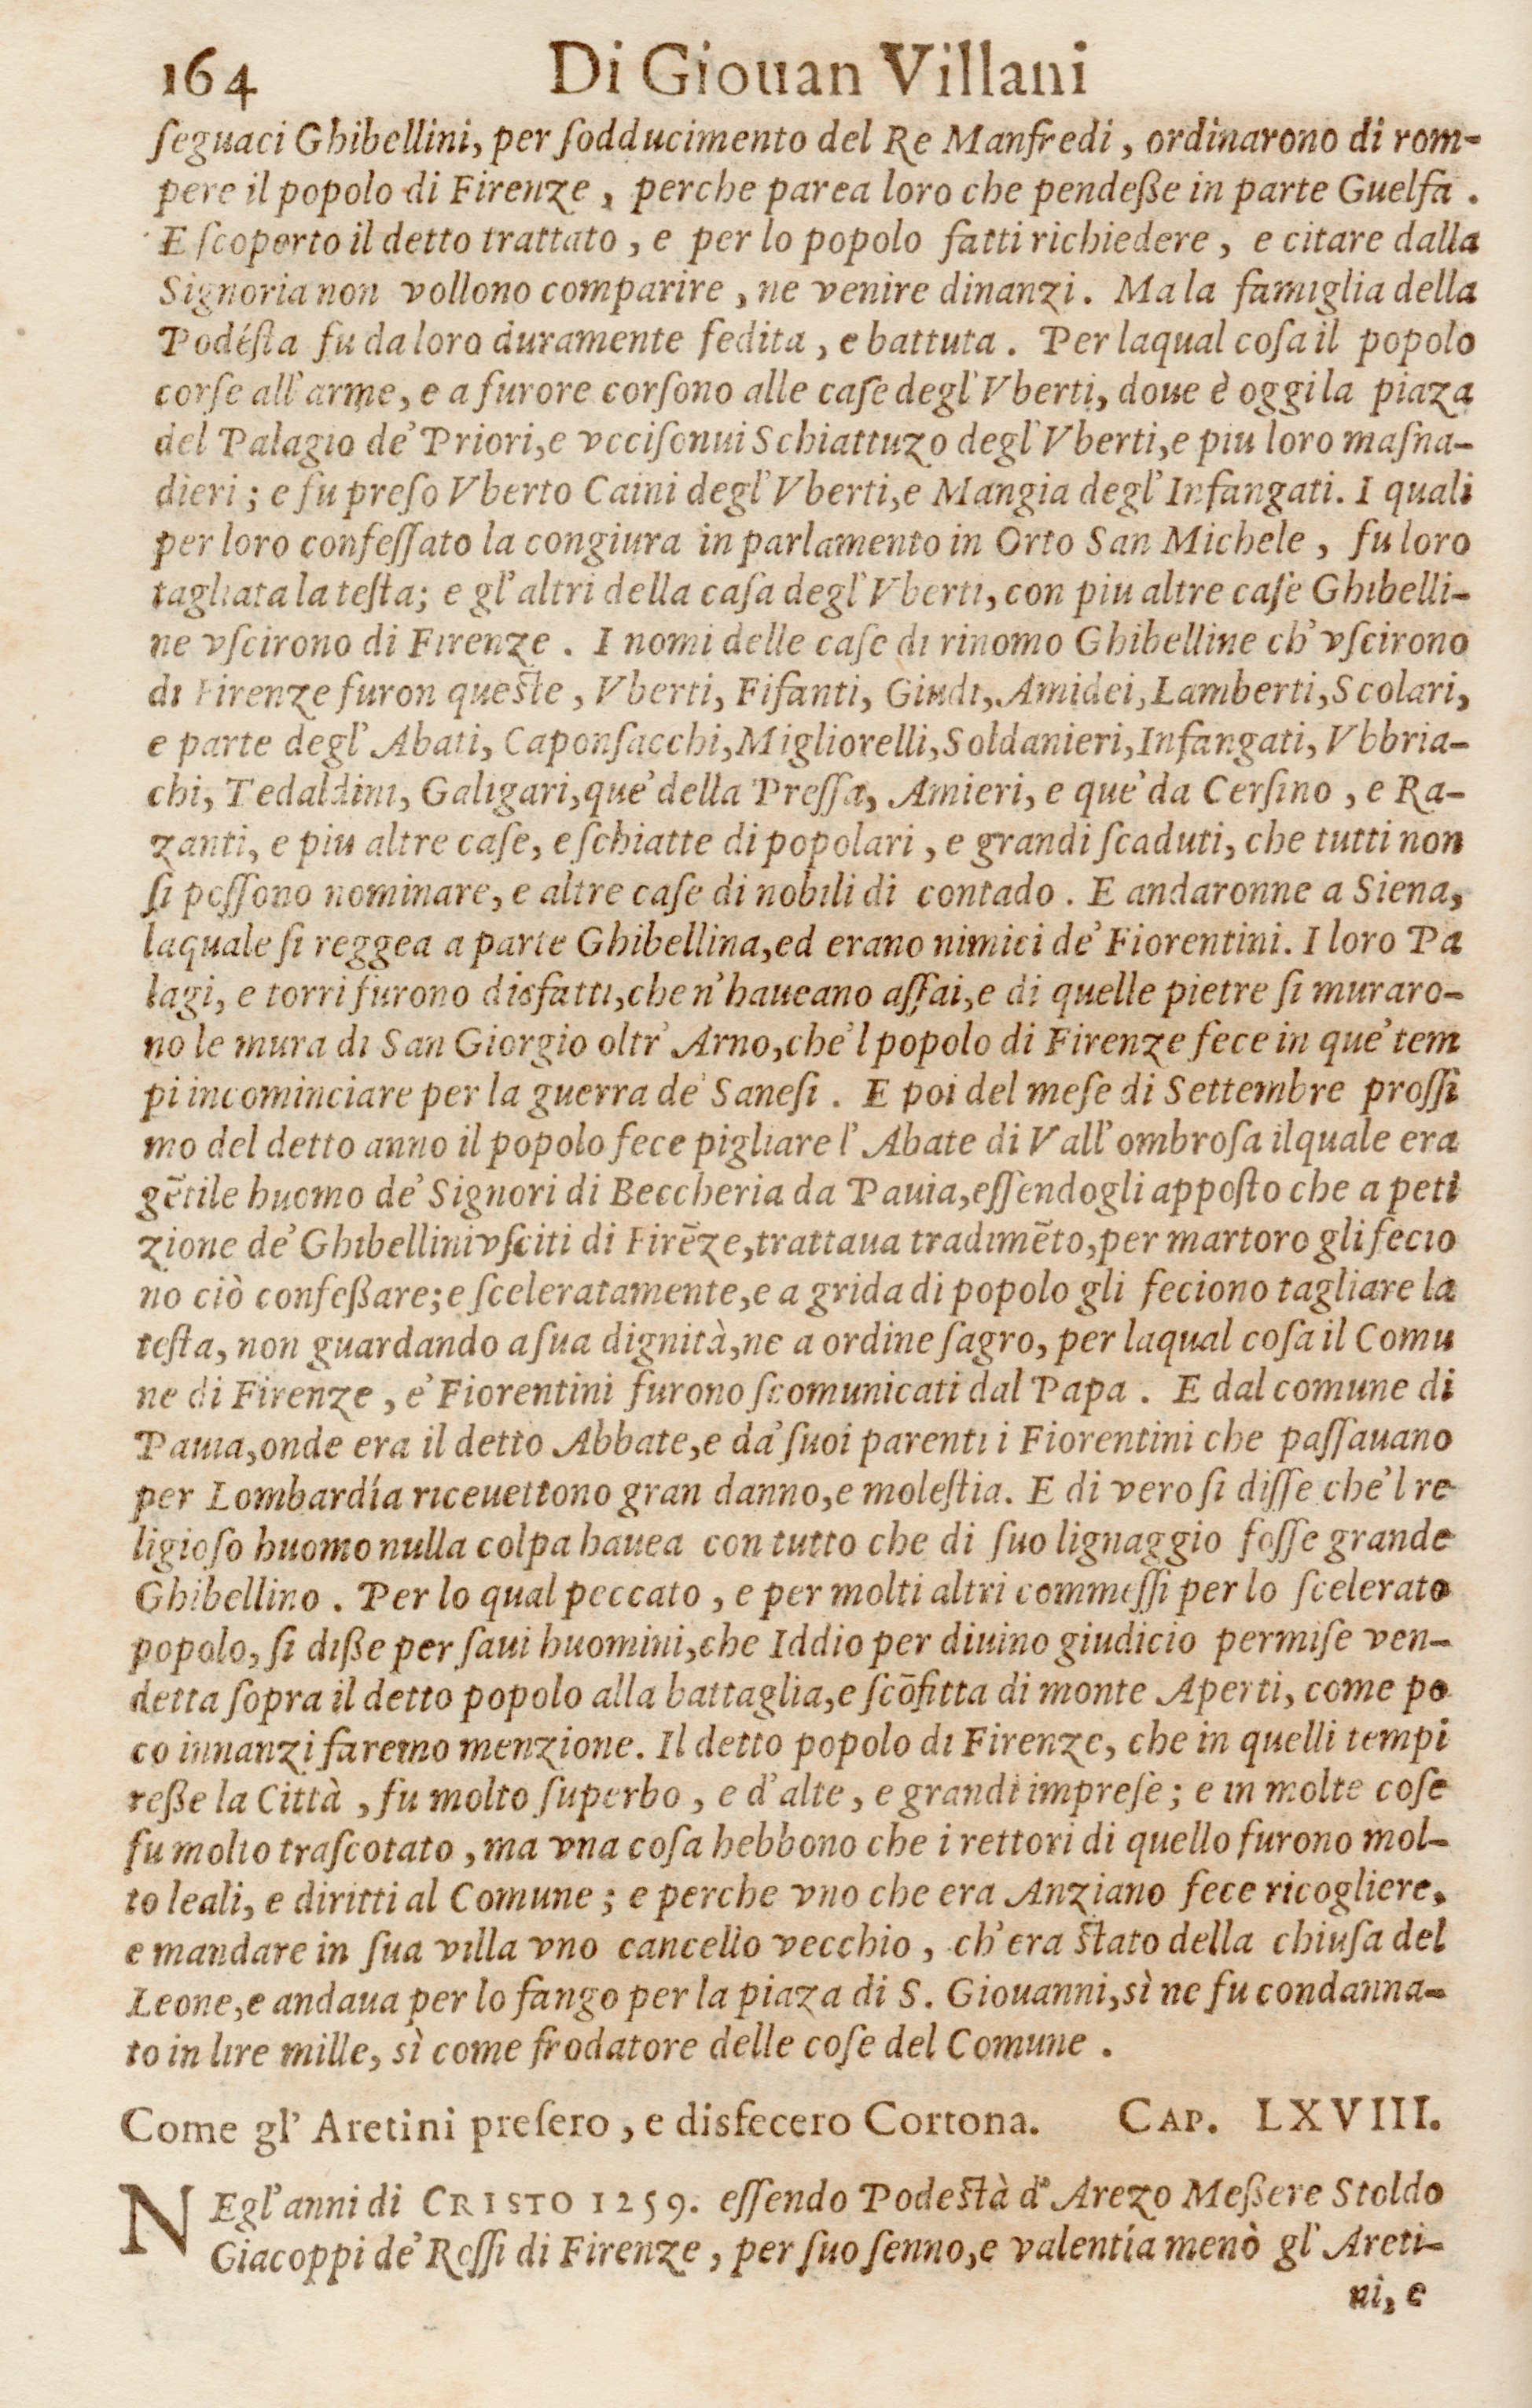 164 Di Giouan Villani
ſeguaci Ghibellini, per ſodducimento del Re Manfredi, ordinarono di rom-
pere il popolo di Firenze, perche parea loro che pendeße in parte Guelfa.
E ſcoperto il detto trattato, e per lo popolo fatti richiedere, e citare dalla
Signoria non vollono comparire, ne venire dinanzi. Ma la famiglia della
Podéſta fu da loro duramente fedita, e battuta. Per laqual coſa il popolo
corſe all'arme, e a furore corſono alle caſe degl'Vberti, doue è oggi la piaza
del Palagio de' Priori, e vcciſonui Schiattuzo degl'Vberti, e piu loro maſna-
dieri; e fu preſo Vberto Caini degl'Vberti, e Mangia degl'Infangati. I quali
per loro confeſſato la congiura in parlamento in Orto San Michele, fu loro
tagliata la teſta; e gl'altri della caſa degl'Vberti, con piu altre caſe Ghibelli-
ne vſcirono di Firenze. I nomi delle caſe di rinomo Ghibelline ch'vſcirono
di Firenze furon queſte, Vberti, Fifanti, Giudi, Amidei, Lamberti, Scolari,
e parte degl'Abati, Caponſacchi, Migliorelli, Soldanieri, Infangati, Vbbria-
chi, Tedaldini, Galigari, que' della Preſſa, Amieri, e que' da Cerſino, e Ra-
zanti, e piu altre caſe, e ſchiatte di popolari, e grandi ſcaduti, che tutti non
ſi poſſono nominare, e altre caſe di nobili di contado. E andaronne a Siena,
laquale ſi reggea a parte Ghibellina, ed erano nimici de' Fiorentini. I loro Pa
lagi, e torri furono disfatti, che n'haueano aſſai, e di quelle pietre ſi muraro-
no le mura di San Giorgio oltr'Arno, che'l popolo di Firenze fece in que' tem
pi incominciare per la guerra de' Saneſi. E poi del meſe di Settembre proſſi
mo del detto anno il popolo fece pigliare l'Abate di Vall'ombroſa ilquale era
gētile huomo de' Signori di Beccheria da Pauia, eſſendogli appoſto che a peti
zione de' Ghibellini vſciti di Firēze, trattaua tradimēto, per martoro gli fecio
no ciò confeßare; e ſceleratamente, e a grida di popolo gli feciono tagliare la
teſta, non guardando a ſua dignità, ne a ordine ſagro, per laqual coſa il Comu
ne di Firenze, e' Fiorentini furono ſcomunicati dal Papa. E dal comune di
Pauia, onde era il detto Abbate, e da' ſuoi parenti i Fiorentini che paſſauano
per Lombardía riceuettono gran danno, e moleſtia. E di vero ſi diſſe che'l re
ligioſo huomo nulla colpa hauea con tutto che di ſuo lignaggio foſſe grande
Ghibellino. Per lo qual peccato, e per molti altri commeſſi per lo ſcelerato
popolo, ſi diße per ſaui huomini, che Iddio per diuino giudicio permiſe ven-
detta ſopra il detto popolo alla battaglia, e ſcōfitta di monte Aperti, come po
co innanzi faremo menzione. Il detto popolo di Firenze, che in quelli tempi
reße la Città, fu molto ſuperbo, e d'alte, e grandi impreſe; e in molte coſe
fu molto traſcotato, ma vna coſa hebbono che i rettori di quello furono mol-
to leali, e diritti al Comune; e perche vno che era Anziano fece ricogliere,
e mandare in ſua villa vno cancello vecchio, ch'era ſtato della chiuſa del
Leone, e andaua per lo fango per la piaza di S. Giouanni, sì ne fu condanna-
to in lire mille, sì come frodatore delle coſe del Comune.
Come gl' Aretini preſero, e disfecero Cortona. CAP. LXVIII.
NEgl'anni di CRISTO 1259. eſſendo Podeſtà d'Arezo Meßere Stoldo
Giacoppi de' Roſſi di Firenze, per ſuo ſenno, e valentía menò gl'Areti-
ni, e